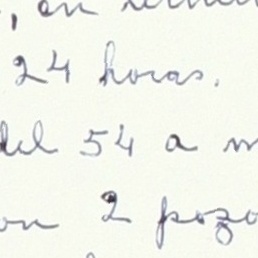 , en
24 horas.
del 54 a m
on 2 pozo